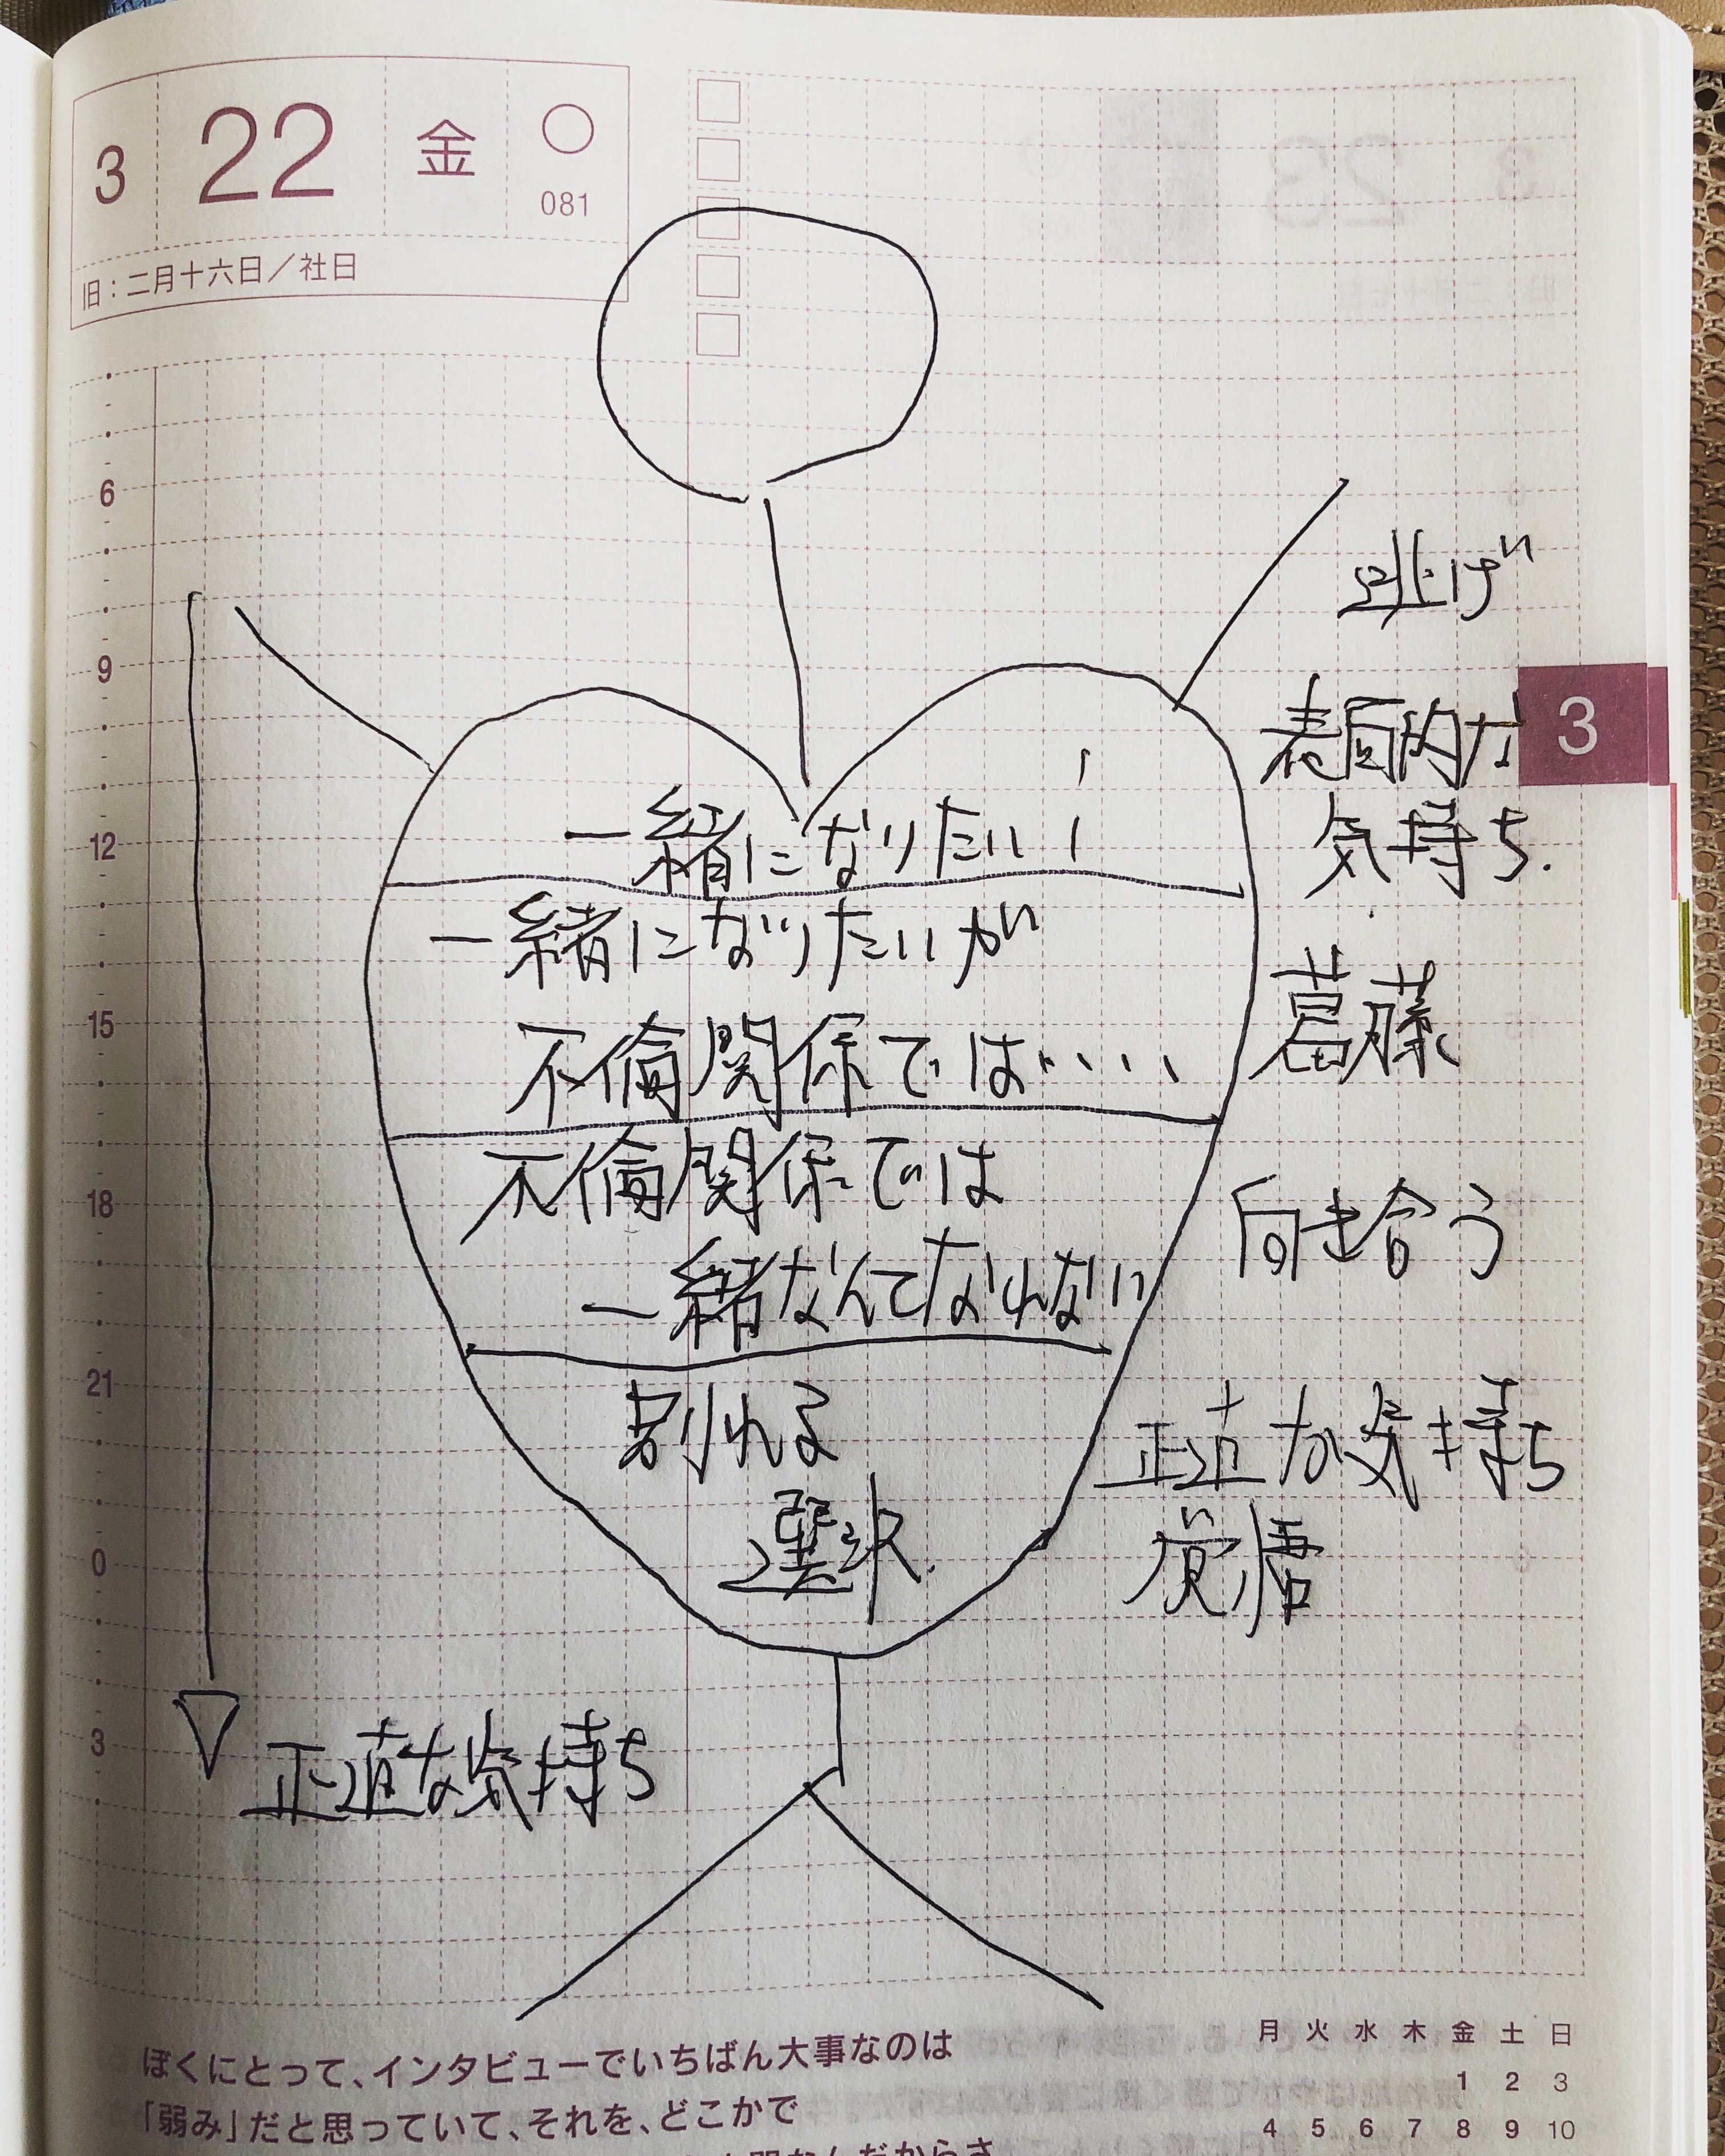 3 22 金
081
旧：二月十六日／社日
6
9
12
15
18
21
0
3
逃げ
表面的な
3
気持ち.
一緒になりたい！
一緒になりたいが
不倫関係では・・・・
葛藤
不倫関係では
一緒なんてなれない
向き合う
別れる
選択.
正直な気持ち
覚悟
正直な気持ち
ぼくにとって、インタビューでいちばん大事なのは
「弱み」だと思っていて、それを、どこかで
月 火 水 木 金 土 日
1 2 3
4 5 6 7 8 9 10